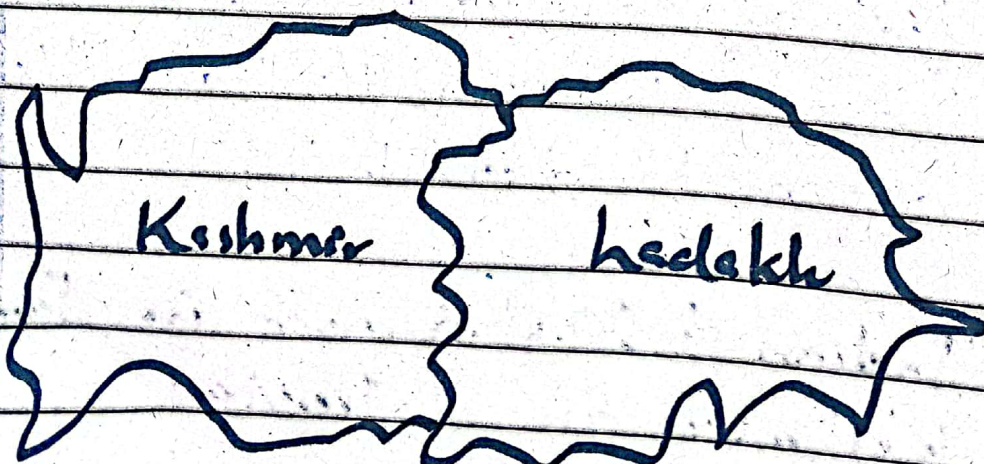 Kashmir
Ladakh